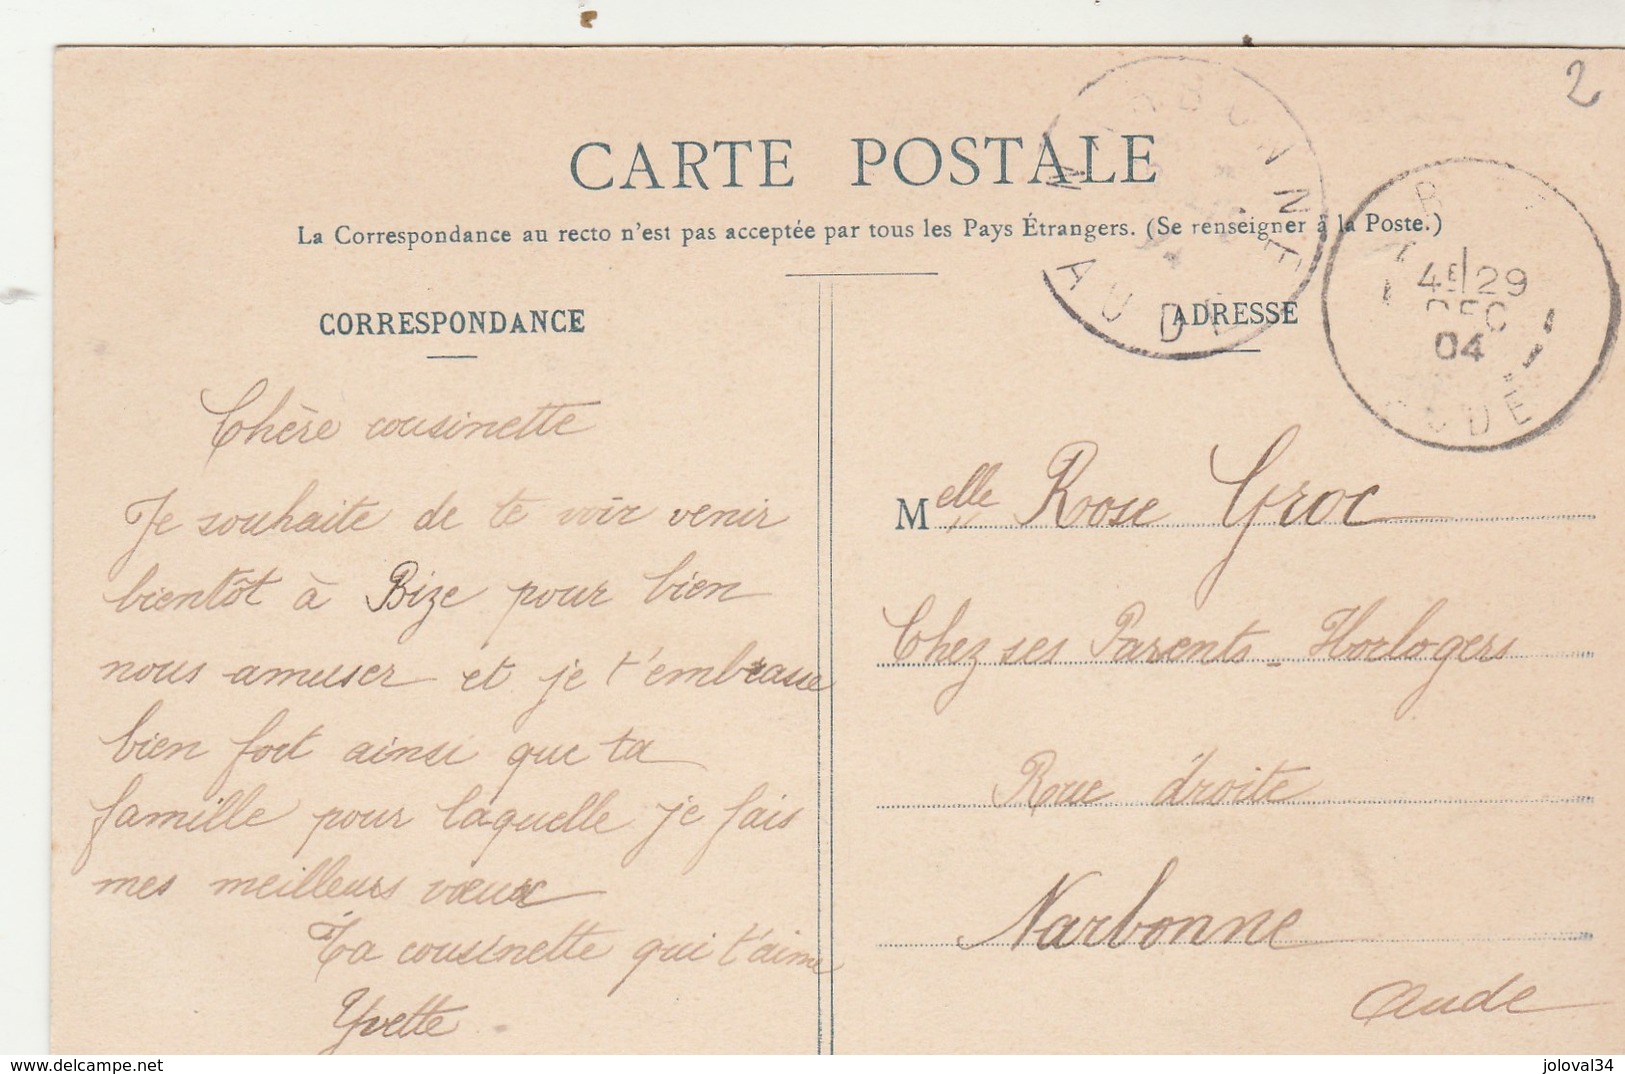 2
CARTE POSTALE
La Correspondance au recto n'est pas acceptée par tous les Pays Étrangers. (Se renseigner à la Poste.)
NARBONNE
AUDE
4E 29
DEC
04
AUDE
CORRESPONDANCE
Chère cousinette
Je souhaite de te voir venir
bientôt à Bize pour bien
nous amuser et je t'embrasse
bien fort ainsi que ta
famille pour laquelle je fais
mes meilleurs vœux
Ta cousinette qui t'aime
Yvette
ADRESSE
Melle Rose Groc
Chez ses Parents - Horlogers
Rue droite
Narbonne
Aude
www.delcampe.net
joloval34